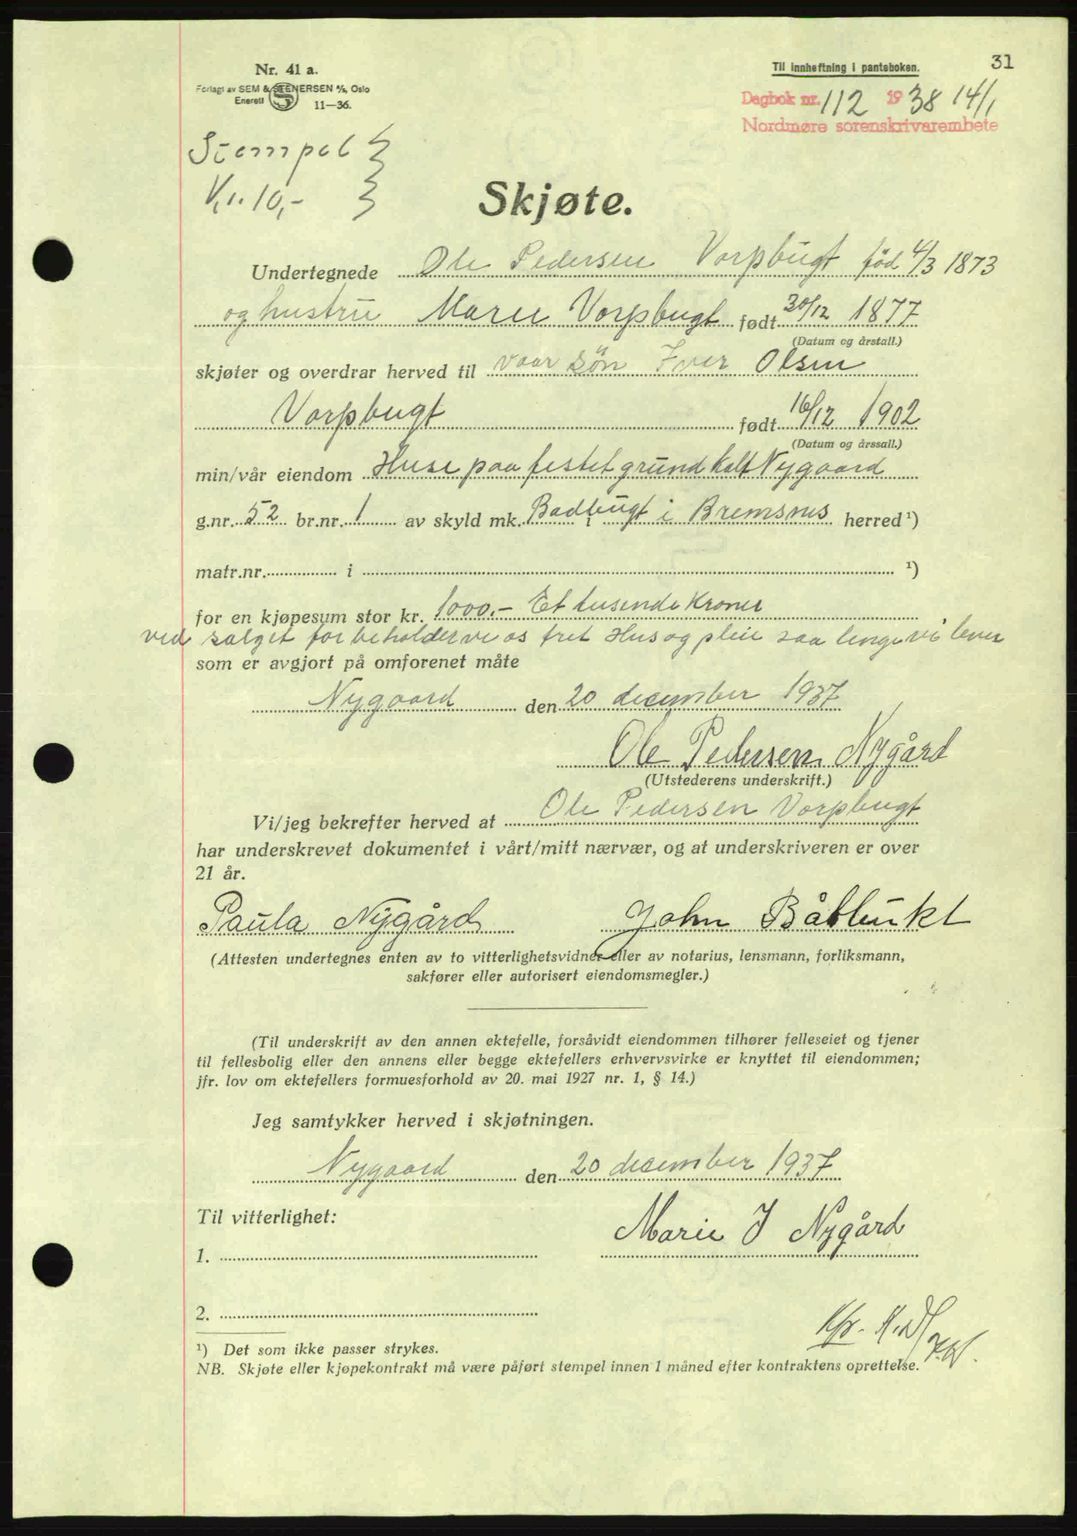 31
Nr. 41 a.
Forlagt av SEM & STENERSEN A/S, Oslo
Enerett S 11—36.
Til innheftning i panteboken.
Dagbok nr. 112 1938 14/1
Nordmøre sorenskrivarembete
Stempel }
Kr. 10,- }
Skjøte.
Undertegnede Ole Pedersen Vorpbugt fød 4/3 1873
og hustru Marie Vorpbugt født 30/12 1877
(Datum og årstall.)
skjøter og overdrar herved til vaar søn Iver Olsen
Vorpbugt født 16/12 1902
(Datum og årssall.)
min/vår eiendom Huse paa festet grund kalt Nygaard
g.nr. 52 br.nr. 1 av skyld mk. Badbugt i Bremsnes herred ¹)
matr.nr. i ¹)
for en kjøpesum stor kr. 1000.- Et tusende Kroner
ved salget forbeholder vi os frit Hus og pleie saa lenge vi lever
som er avgjort på omforenet måte
Nygaard den 20 december 1937
Ole Pedersen Nygård
(Utstederens underskrift.)
Vi/jeg bekrefter herved at Ole Pedersen Vorpbugt
har underskrevet dokumentet i vårt/mitt nærvær, og at underskriveren er over
21 år.
Paula Nygård John Båtbukt
(Attesten undertegnes enten av to vitterlighetsvidner eller av notarius, lensmann, forliksmann,
sakfører eller autorisert eiendomsmegler.)
(Til underskrift av den annen ektefelle, forsåvidt eiendommen tilhører felleseiet og tjener
til fellesbolig eller den annens eller begge ektefellers erhvervsvirke er knyttet til eiendommen;
jfr. lov om ektefellers formuesforhold av 20. mai 1927 nr. 1, § 14.)
Jeg samtykker herved i skjøtningen.
Nygaard den 20 december 1937
Til vitterlighet:
Marie J Nygård
1.
2.
¹) Det som ikke passer strykes.
NB. Skjøte eller kjøpekontrakt må være påført stempel innen 1 måned efter kontraktens oprettelse.